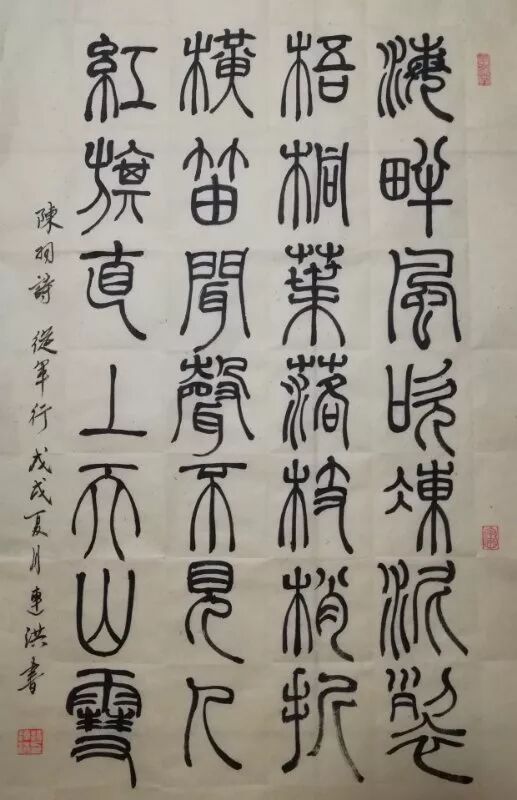 海畔風吹凍泥裂
梧桐葉落枝梢折
橫笛聞聲不見人
紅旗直上天山雪
陳羽詩 從軍行 戊戌夏月連洪書